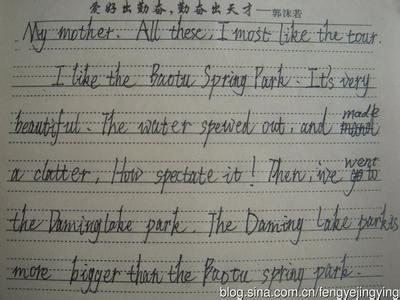 爱好出勤奋,勤奋出天才——郭沫若
My mother. All these, I most like the tour.
I like the Baotu Spring Park. It's very
beautiful. The water spewed out, and made
a clatter, How spectate it! Then, we went to
the Daminglake park. The Daming Lake park is
more bigger than the Baotu spring park.
blog.sina.com.cn/fengyejingying